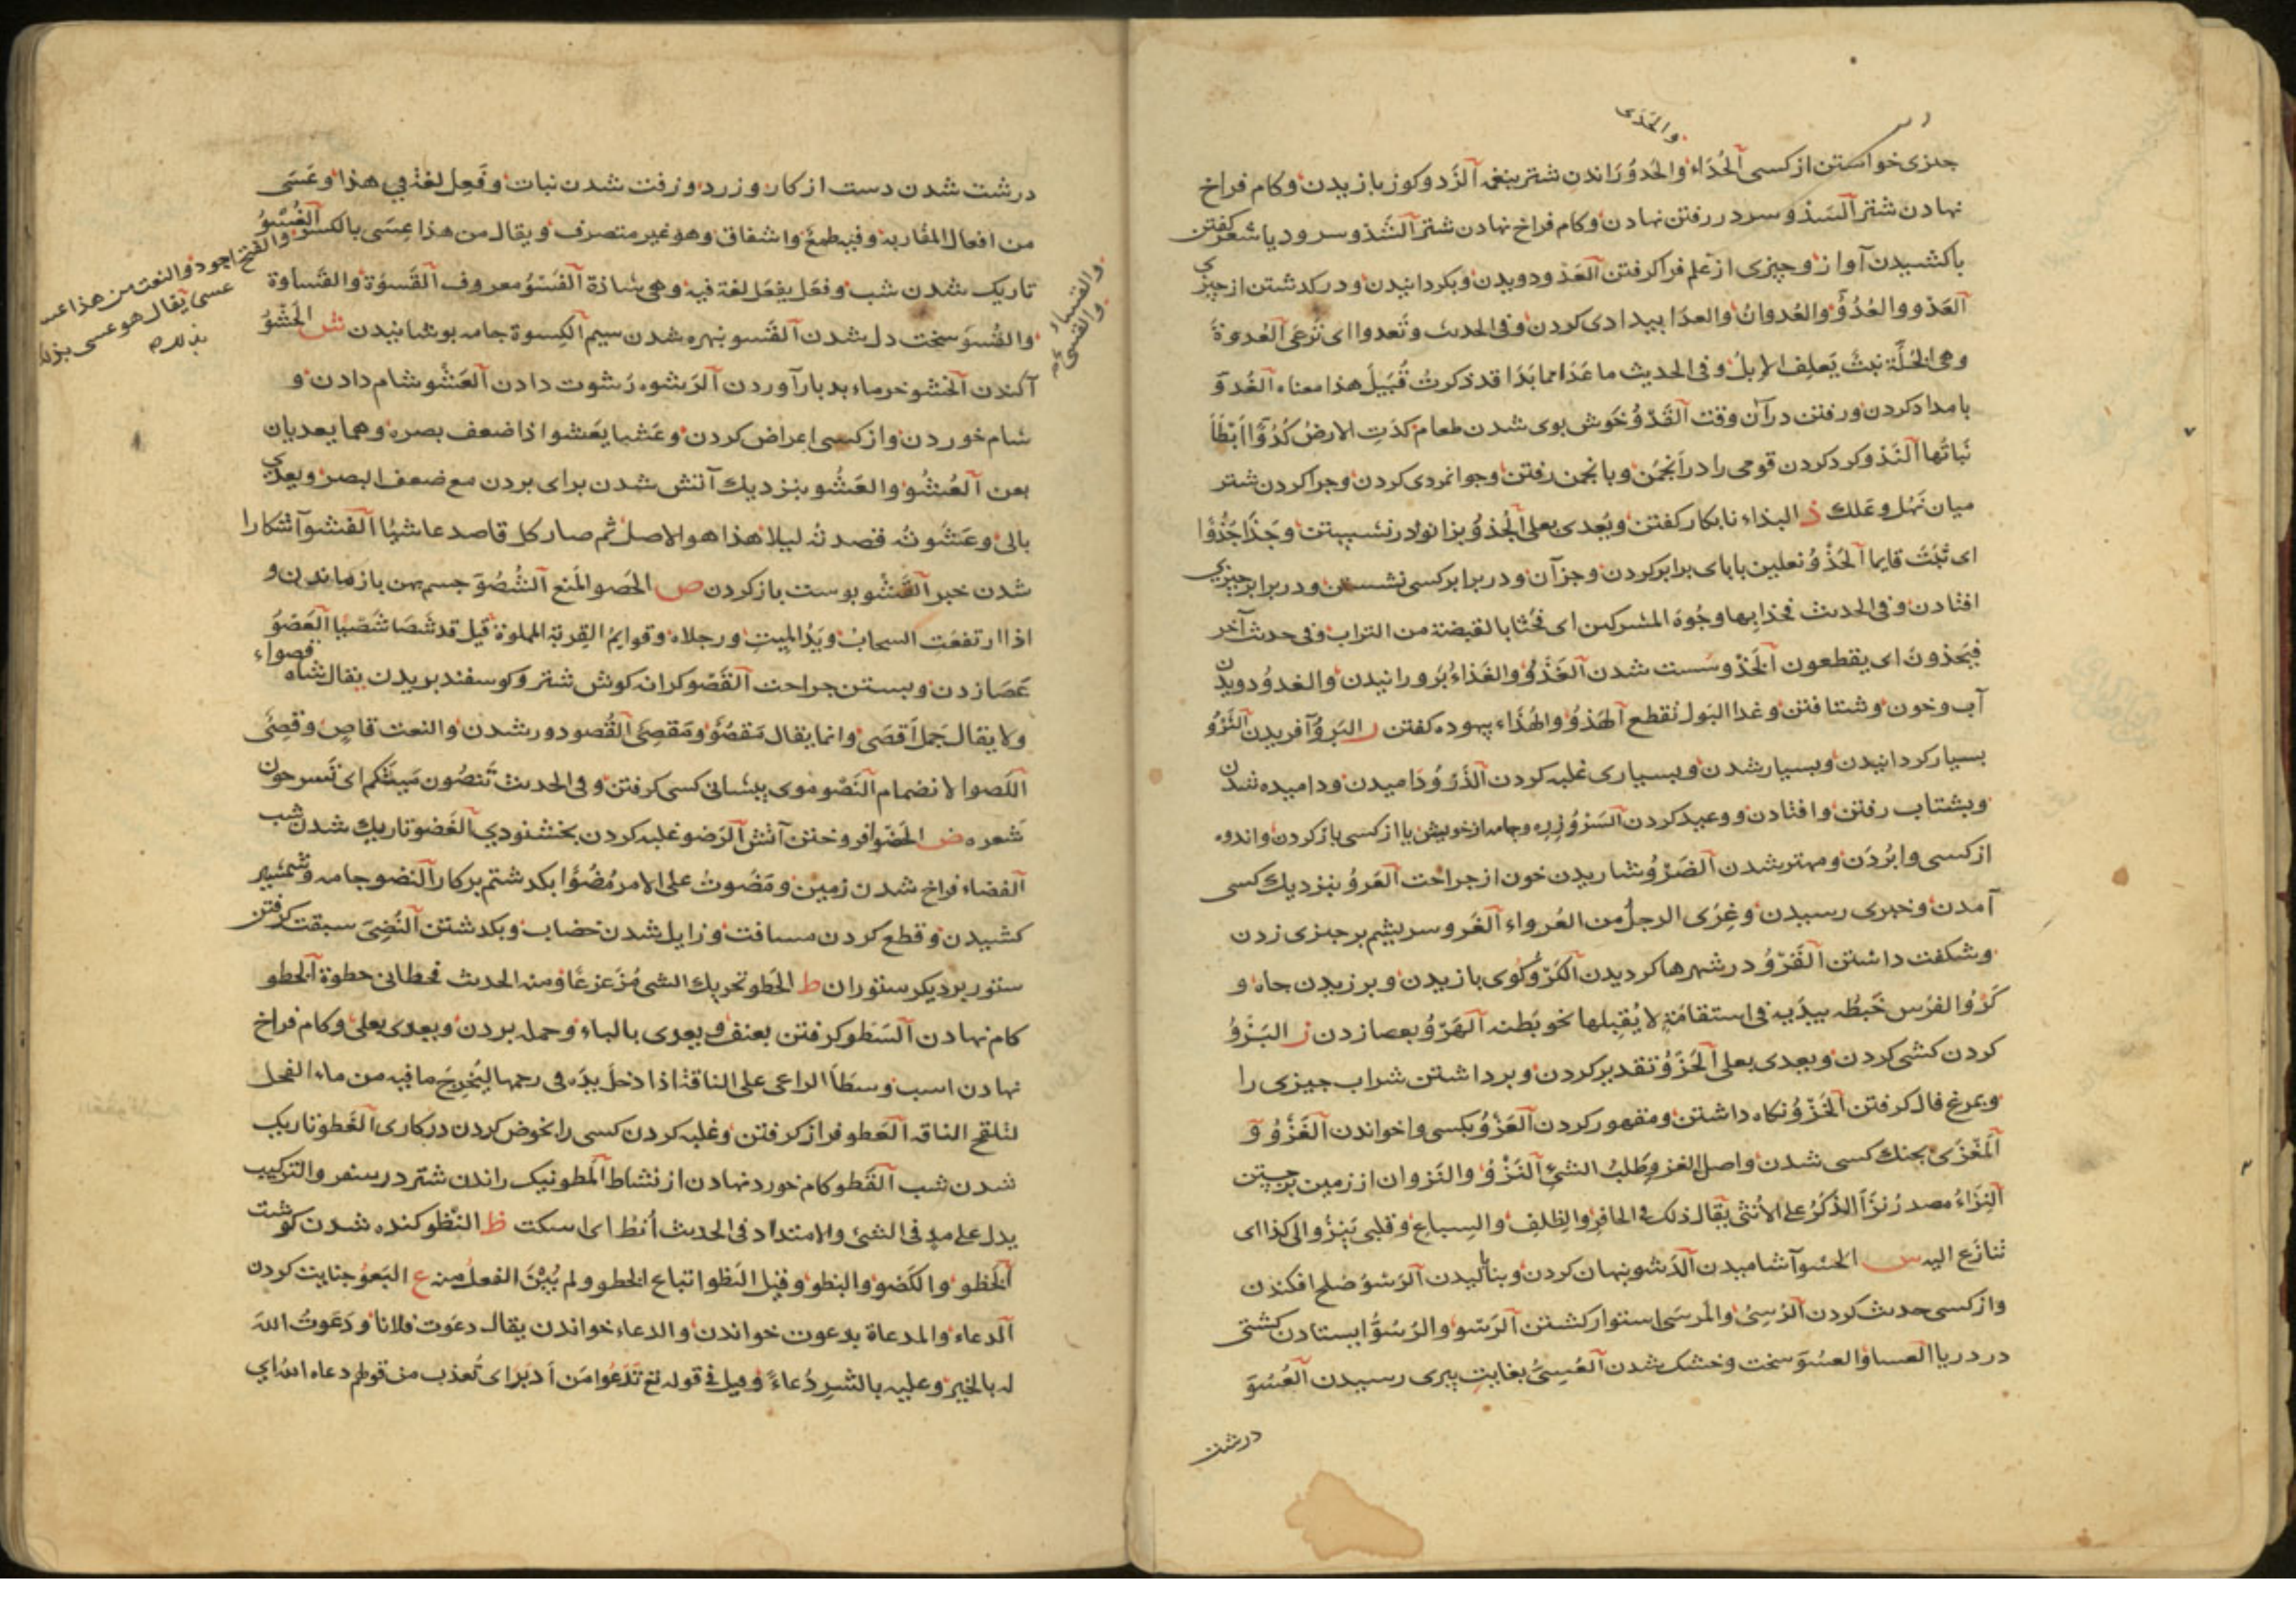 والحَدَى
چیزی خواستن از کسی آلحُدَاء والحَدوُ رَاندن شتر بنغمه آلزَدو کوز بازیدن وکام فراخ
نهادن شتر آلسَدْو سرد در رفتن نهادن وکام فراخ نهادن شتر آلشَدْو سرود یا شعر کفتن
باکشیدن آواز وچیزی از علم فرا کرفتن آلعَدْو دویدن وبکردانیدن ودرکدشتن از چیزی
آلعَدْو والعُدُوُّ والعُدوانُ والعدَا بیدادی کردن وفی الحدیث وتَعدوا ای تَرعَی آلعُدوة
وهی الخُلّة نبتٌ یَعلِف الإبلُ وفی الحدیث ما عَدَا مما بَدَا قد ذکرتُ قُبَیلَ هذا معناه آلغُدوّ
بامداد کردن ورفتن در آن وقت آلقَدْوُ خَوش بوی شدن طعام کدَتِ الارضُ کُدُوًّا اَبْطَأَ
نَباتُها آلنَدْو کرد کردن قومی را در اَنجمَن وبانجمن رفتن وجوانمردی کردن وچرا کردن شتر
میان نَهَل وعَلَل ذ البذاء نابکار کفتن ویُعدی بعلی آلجُذوُّ بزانو در نشیستن وجَذَا جَذُوًّا
ای ثَبَتَ قایما آلحَذْوُ نعلین با پای برابر کردن وجز آن ودر برابر کسی نشستن ودر برابر چیزی
افتادن وفی الحدیث فحذا بها وجُوهَ المشرکین ای فحُثَا بالقبضة من التراب وفی حدیث آخر
فیَحَذونَ ای یقطعون آلخَذْو سُست شدن آلغَذْوُ والغَذاءُ بَرورانیدن والغدوُ دویدن
آب وخون وشتافتن وغدا البَول تَقطع آلهَذوُ والهُذَاء بیهوده کفتن ر البَروُ آفریدن آلثَرْوُ
بسیار کردانیدن وبسیار شدن وبسیاری غلبه کردن آلذَرْوُ دَامیدن ودامیده شدن
وبشتاب رفتن وافتادن ووعید کردن آلسَرْوُ زره وجامه از خویش یا از کسی باز کردن واندوه
از کسی وابُردَن ومهتر شدن آلضَرْوُ شاریدن خون از جراحت آلعَروُ بنزدیك کسی
آمدن وخیری رسیدن وغِرَی الرجلُ من العُرواء آلغَرو سریشم بر چیزی زدن
وشکفت داشتن آلقَرْوُ در شهرها کردیدن آلکَرْوُ کوی بازیدن وبرزیدن چاه و
کَرْوُ الفرَس خَبطُه بیدَیه فی استقامَةٍ لایُقبِلها نحو بَطنه آلهَرْوُ بعصا زدن ز البَزْوُ
کردن کشی کردن ویعدی بعلی آلحَزْوُ تقدیر کردن وبرداشتن شراب چیزی را
وبمرغ فال کرفتن آلخَزْوُ نکاه داشتن ومقهور کردن آلعَزْوُ بکسی واخواندن آلغَزْوُ و
آلمَغْزَی بجنك کسی شدن واصل الغزو طَلَبُ الشئ آلنَزْوُ والنَزوان از زمین برجستن
آلنِزَاءُ مصدر نَزَاَ الذکَرُ علی الأنثی یقال ذلك فی الحافرِ والظِلفِ والسِباعِ وقلبی یَنِزُو الی کذا ای
تنازَع الیه س الحسْو آشامیدن آلدَسْو نهان کردن وبنالیدن آلرَسْوُ صُلح افکندن
واز کسی حدیث کردن آلرُسِیُ والمَرسَی استوار کشتن آلرَسْو والرُسُوُّ ایستادن کشتی
در دریا العسا والعسُوّ سخت وخشک شدن آلعُسِیُّ بغایت پیری رسیدن آلعُسُوّ
درشت
درشت شدن دست از کار وزرد وزفت شدن نبات وفَعِلَ لغة فی هذا وعَسَی
من افعال المقاربة وفیه طمعٌ واشفاق وهو غیر متصرف ویقال من هذا عِسَی بالکسر آلغُسُوُّ
والفتح اجود والنعت من هذا عسٍ
عسی یقال هو عسی بزید
تاریک شدن شب وفعَل یفعَل لغة فیه وهی شاذة آلفَسْوُ معروف آلقَسوَة والقَساوة
والقساء
والقسی
والقُسوّ سخت دل شدن آلقَسو نبهره شدن سیم آلکِسوة جامه بوشانیدن ش الحَشْوُ
آکندن آلخَشو خرماء بد بار آوردن آلرَشوه رُشوت دادن آلعَشْو شام دادن و
شام خوردن واز کسی اِعراض کردن وعَشیا یعَشوا اذا ضعف بصره وهما یعدیان
بعن آلعُشُو والعَشْو بنزدیك آتش شدن برای بردن مع ضعف البصر ویعدی
بالی وعَشَوتُه قصدتُه لیلا هذا هو الاصل ثم صار کل قاصد عاشیًا آلفشو آشکارا
شدن خبر آلقَشْو بوست باز کردن ص الحَصو المَنع آلشُصُوّ چشم پهن باز ماندن و
اذا ارتفعَت السحابُ ویَدُ المیتِ ورجلاه وقوایمُ القِربة المملوة قیل قد شَصَا شَصیًا آلعَصْوُ
عَصَا زدن وبستن جراحت آلقَصْو کرانه کوش شتر وکوسفند بریدن یقال شاه قصواء
ولا یقال جَمل اَقصَی وانما یقال مَقصُوٌّ ومَقصِیٌّ آلقُصو دور شدن والنعت قاصٍ وقصِیٌّ
اللَصوا لانضمام آلنَصْو موی پیشانی کسی کرفتن وفی الحدیث تَنصُون میّتکم ای تُسرحون
شَعره ض الحَضْو افروختن آتش آلرَضو غلبه کردن بخشنودی آلغَضو تاریك شدن شب
آلفضاء فراخ شدن زمین ومَضُوتُ علی الامر مُضُوًّا بکدشتم بر کار آلنَضو جامه وشمشیر
کشیدن وقطع کردن مسافت وزایل شدن خضاب وبکدشتن آلنُضِیَ سبقت کرفتن
ستور بر دیکر ستوران ط الحَطو تحریك الشئ مُزَعزعًا ومنه الحدیث فحَطانی حطوة آلخطو
کام نهادن آلسَطو کرفتن بعنف ویعدی بالباء وحمله بردن ویعدی بعلی وکام فراخ
نهادن اسب وسَطَا الراعی علی الناقة اذا دَخلَ یدَه فی رحمها لیُخرجَ ما فیه من ماء الفحل
لتلقح الناقه آلعَطو فراز کرفتن وغلبه کردن کسی را بخوض کردن در کاری آلغَطو تاریك
شدن شب آلقَطو کام خورد نهادن از نشاط آلمَطو نیک راندن شتر در سفر والترکیب
یدل علی مدٍ فی الشئ والامتداد فی الحدیث أنطُ ای اسکت ظ النَظو کنده شدن کوشت
آلخَظو والکَضو والبظو وقیل البَظو اتباع الخظو ولم یُبْنَ الفعلُ منه ع البَعوُ جنایت کردن
آلدعاء والمدعاة بدعوت خواندن والدعاء خواندن یقال دعَوت فلانا ودَعَوتُ اللهَ
له بالخیر وعلیه بالشرِ دُعاءً وقیل فی قوله تع تَدْعُوا مَن اَدبَرَ ای تُعذب من قولهم دعاه الله ای